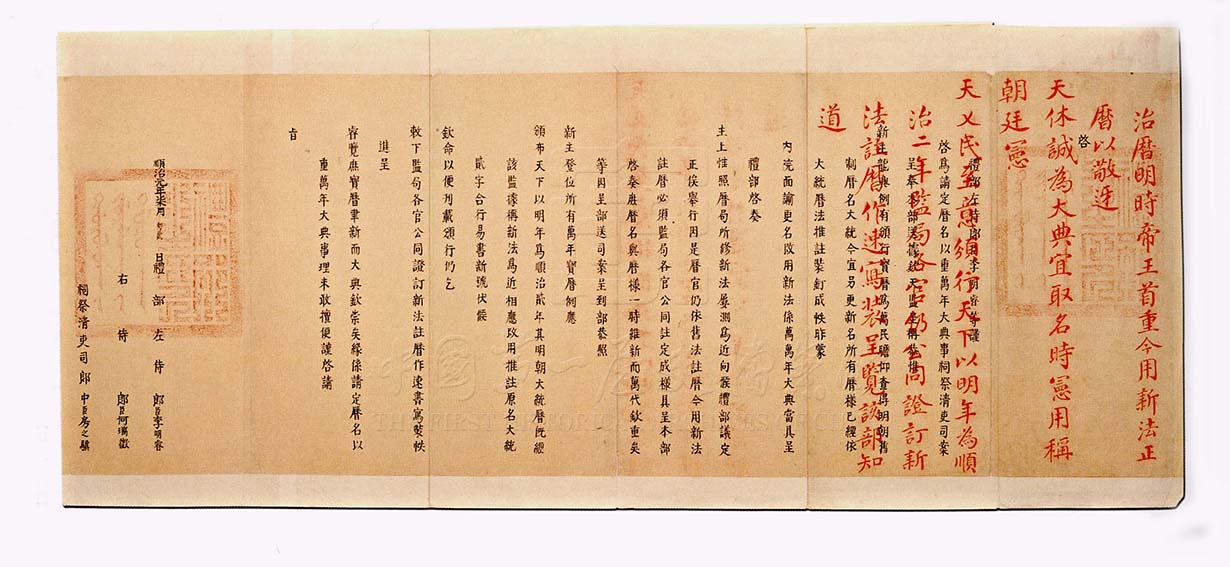 治曆明時帝王首重今用新法正
曆以敬迓
天休誠為大典宜取名時憲用稱
朝廷憲
天乂民至意須行天下以明年為順
治二年監局各官仍公同證訂新
法註曆作速寫裝呈覽該部知
道
啓
禮部左侍郎臣李明睿等謹
啓為請定曆名以重萬年大典事祠祭清吏司案
呈奉本部送據欽天監呈稱恭惟
新主龍興例有頒行寶曆為萬民瞻仰查得明朝舊
制曆名大統今宜另更新名所有曆樣已經依
大統曆法推註裝釘成帙昨蒙
內院面諭更名改用新法係萬萬年大典當具呈
禮部啓奏
主上惟照曆局所修新法屢測為近向蒙禮部議定
正俟舉行因是曆官仍依舊法註曆今用新法
註曆必須監局各官公同註定成樣具呈本部
啓奏庶曆名與曆樣一時維新而萬代欽重矣
等因呈部送司案呈到部恭照
新主登位所有萬年寶曆例應
頒布天下以明年為順治貳年其明朝大統曆旣經
該監據稱新法為近相應改用推註原名大統
貳字合行易書新號伏候
欽命以便刊載頒行仍乞
敕下監局各官公同證訂新法註曆作速書寫裝帙
進呈
睿覽庶寶曆聿新而大典欽崇矣緣係請定曆名以
重萬年大典事理未敢擅便謹啓請
旨
順治元年柒月 日禮部左侍郎臣李明睿
右侍郎臣何瑞徵
祠祭清吏司郎中臣房之騏
中國第一歷史檔案館
THE FIRST HISTORICAL ARCHIVES OF CHINA